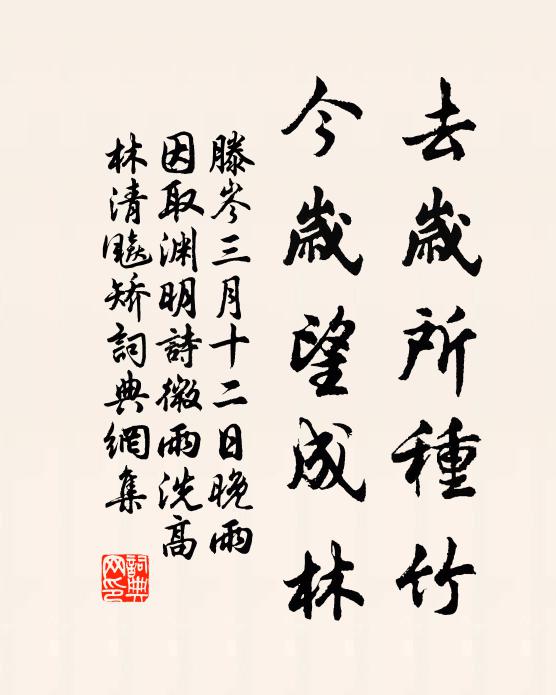 去歲所種竹
今歲望成林
滕岑三月十二日晚雨
因取渊明詩微雨洗高
林清飈矫詞典網集
詞典网印